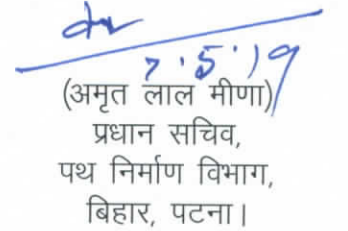 7.5.19
(अमृत लाल मीणा)
प्रधान सचिव,
पथ निर्माण विभाग,
बिहार, पटना।